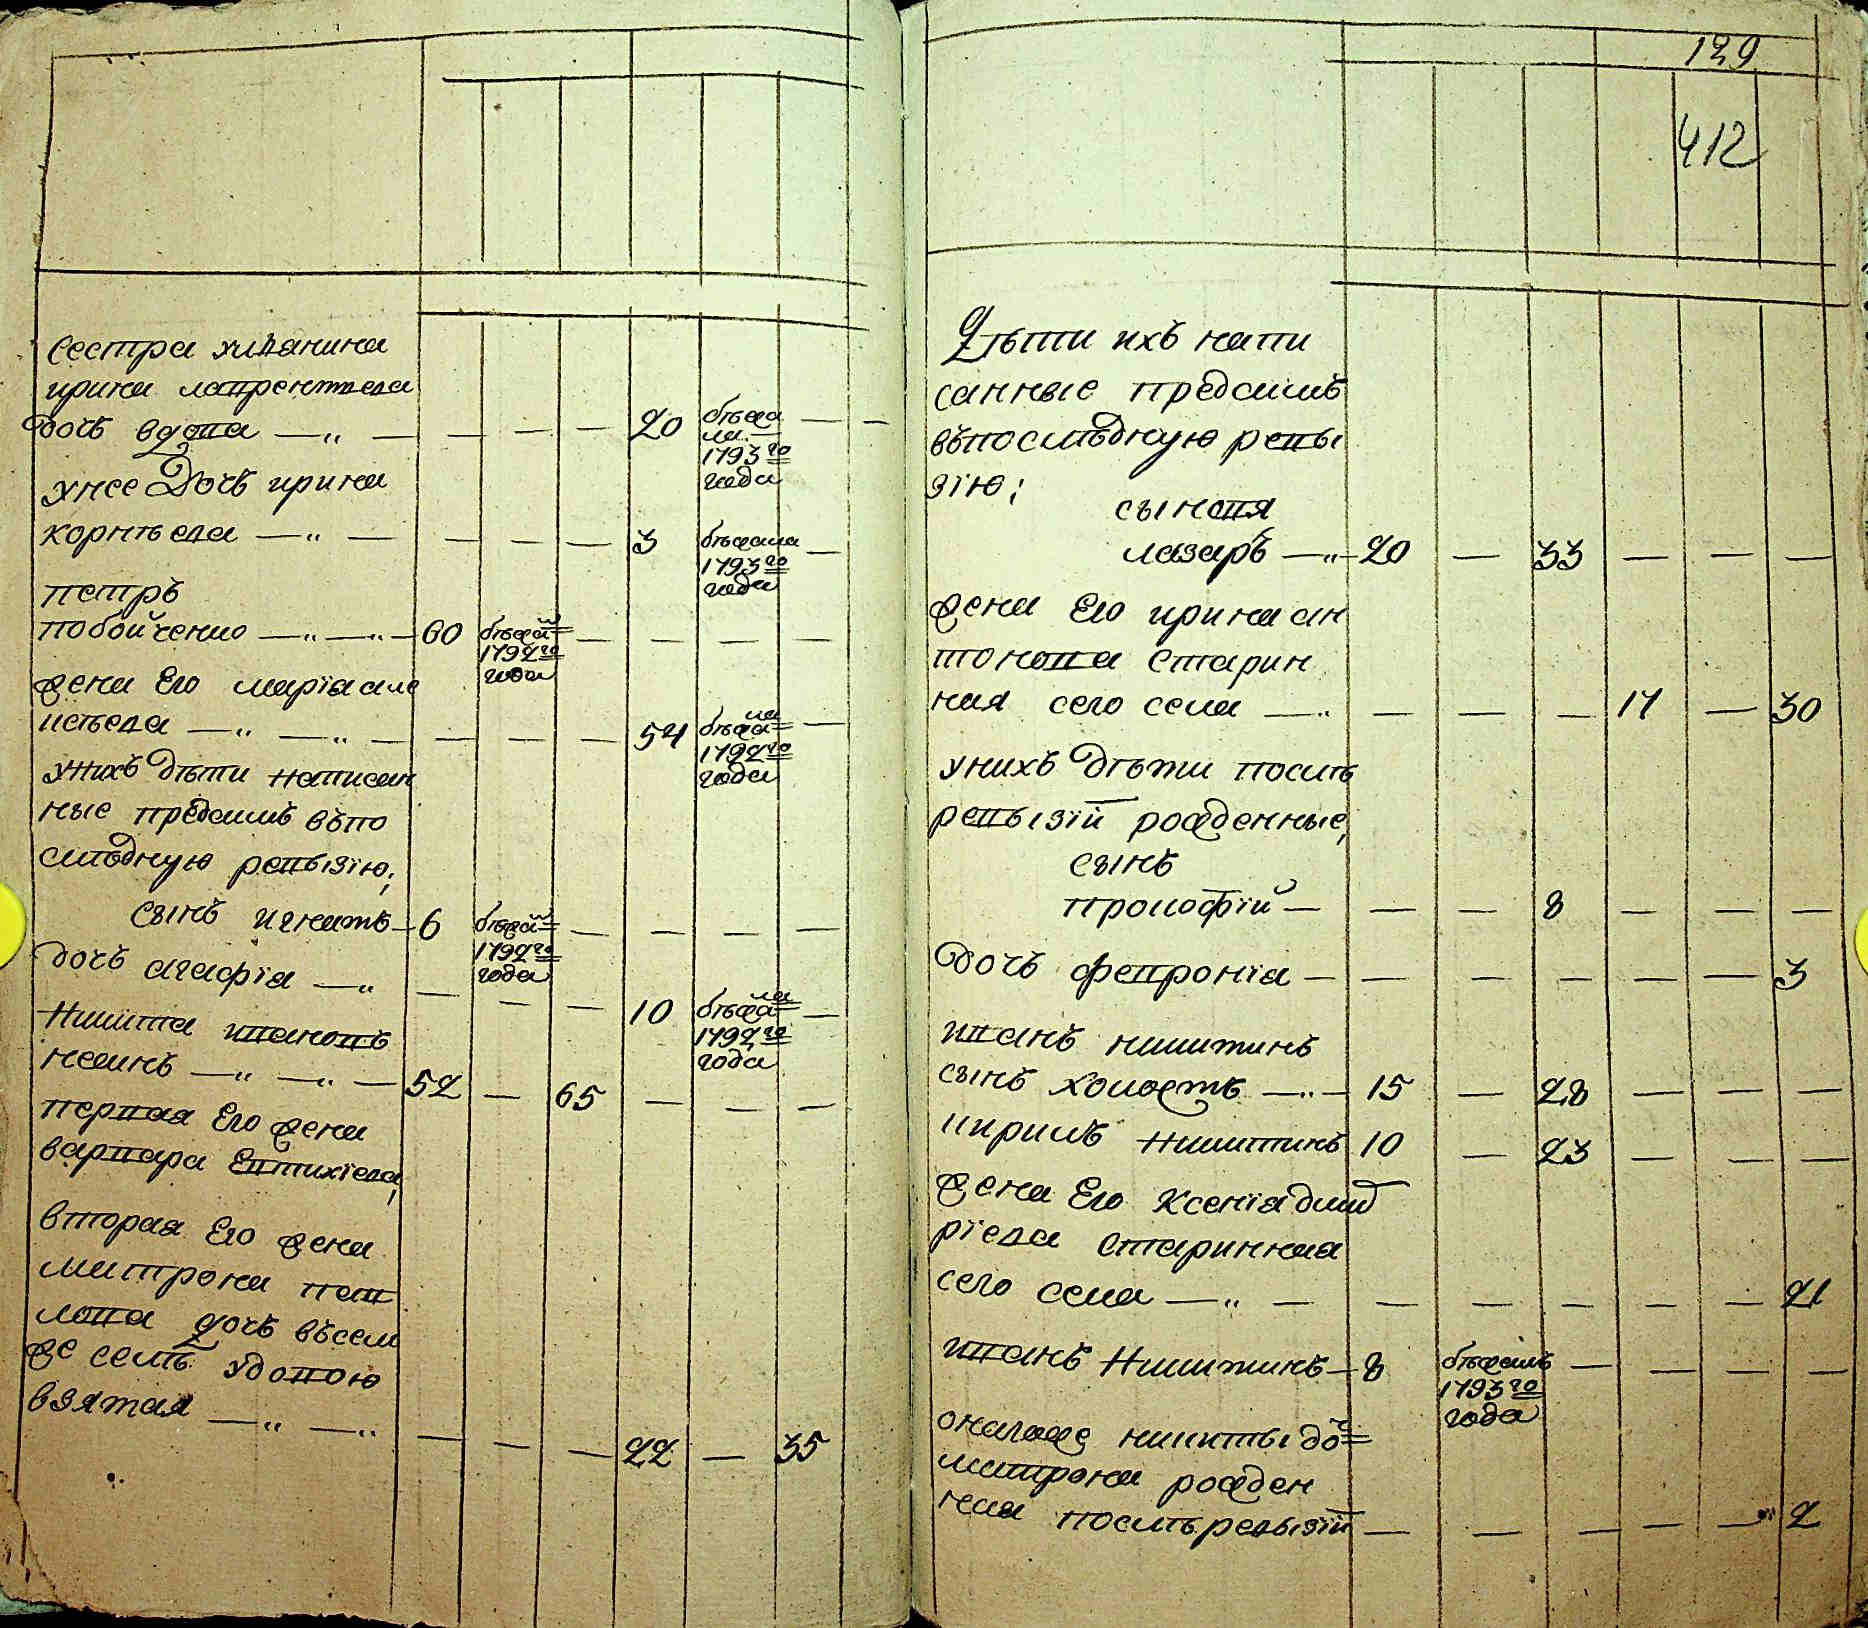 Сестра улянина
ирина лаврентьева
дочь вдова — „ — — — — 20 бежа — —
ла —
1793 го
года
унее Дочь ирина
корнѣева — „ — — — — 3 бежала —
1793 го
года
петръ
побойченко — „ — „ — 60 бежалъ — — — —
1792 го
года
жена Его марїя але
ксѣева — „ — „ — — — — 54 бежала —
1792 го
года
унихъ дѣти написан
ные предсимъ въпо
слѣдную ревизїю;
сынъ игнатъ — 6 бежалъ — — — —
1792 го
года
дочь агафїя — „ — — — 10 бежала —
1792 го
года
Никита ивановъ
наинъ — „ — „ — 52 — 65 — — —
первая Его жена
варвара Евтихїева,
вторая Его жена
матрона пав
лова дочь въсем
же селѣ удовою
взятая — „ — „ — — — 22 — 35
129
412
Дѣти ихъ напи
санные предсимъ
въпослѣдную реви
зїю;
сыновя
лазарь — „ — 20 — 33 — — —
жена Его ирина ан
тонова старин
ная сего села — „ — — — 17 — 30
унихъ дѣти послѣ
ревизїй рожденные,
сынъ
прокофїй — — — 8 — — —
дочь февронїа — — — — — — 3
иванъ никитинъ
сынъ холостъ — „ — 15 — 28 — — —
кирилъ Никитинъ 10 — 23 — — —
жена Его Ксенїя дмит
рїева старинная
сего села — „ — — — — — — 21
иванъ Никитинъ — 8 бежалъ — — — —
1793 го
года
оналаже никиты доч
матрона рожден
ная послѣ ревизїй — — — — — 2